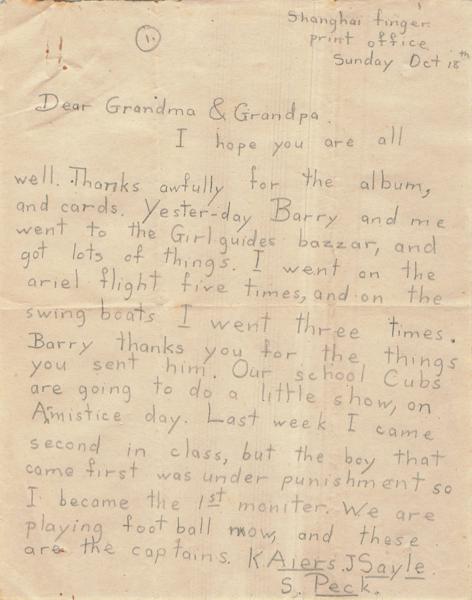 Shanghai finger
print office
Sunday Oct 18th
4
1.
Dear Grandma & Grandpa.
I hope you are all
well. Thanks awfully for the album,
and cards. Yester-day Barry and me
went to the Girl guides bazzar, and
got lots of things. I went on the
ariel flight five times, and on the
swing boats I went three times.
Barry thanks you for the things
you sent him. Our school Cubs
are going to do a little show, on
Armistice day. Last week I came
second in class, but the boy that
came first was under punishment so
I became the 1st moniter. We are
playing foot ball now, and these
are the captains. K. Aiers. J Sayle.
S. Peck.